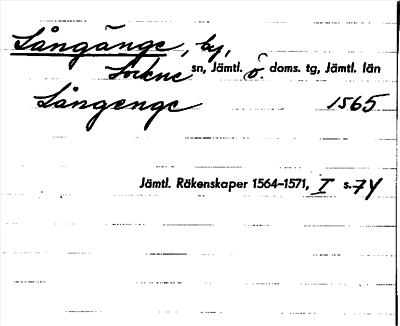 Långänge, by,
Lockne sn, Jämtl. ö. doms. tg, Jämtl. län
Långenge 1565
Jämtl. Räkenskaper 1564–1571, I s. 74